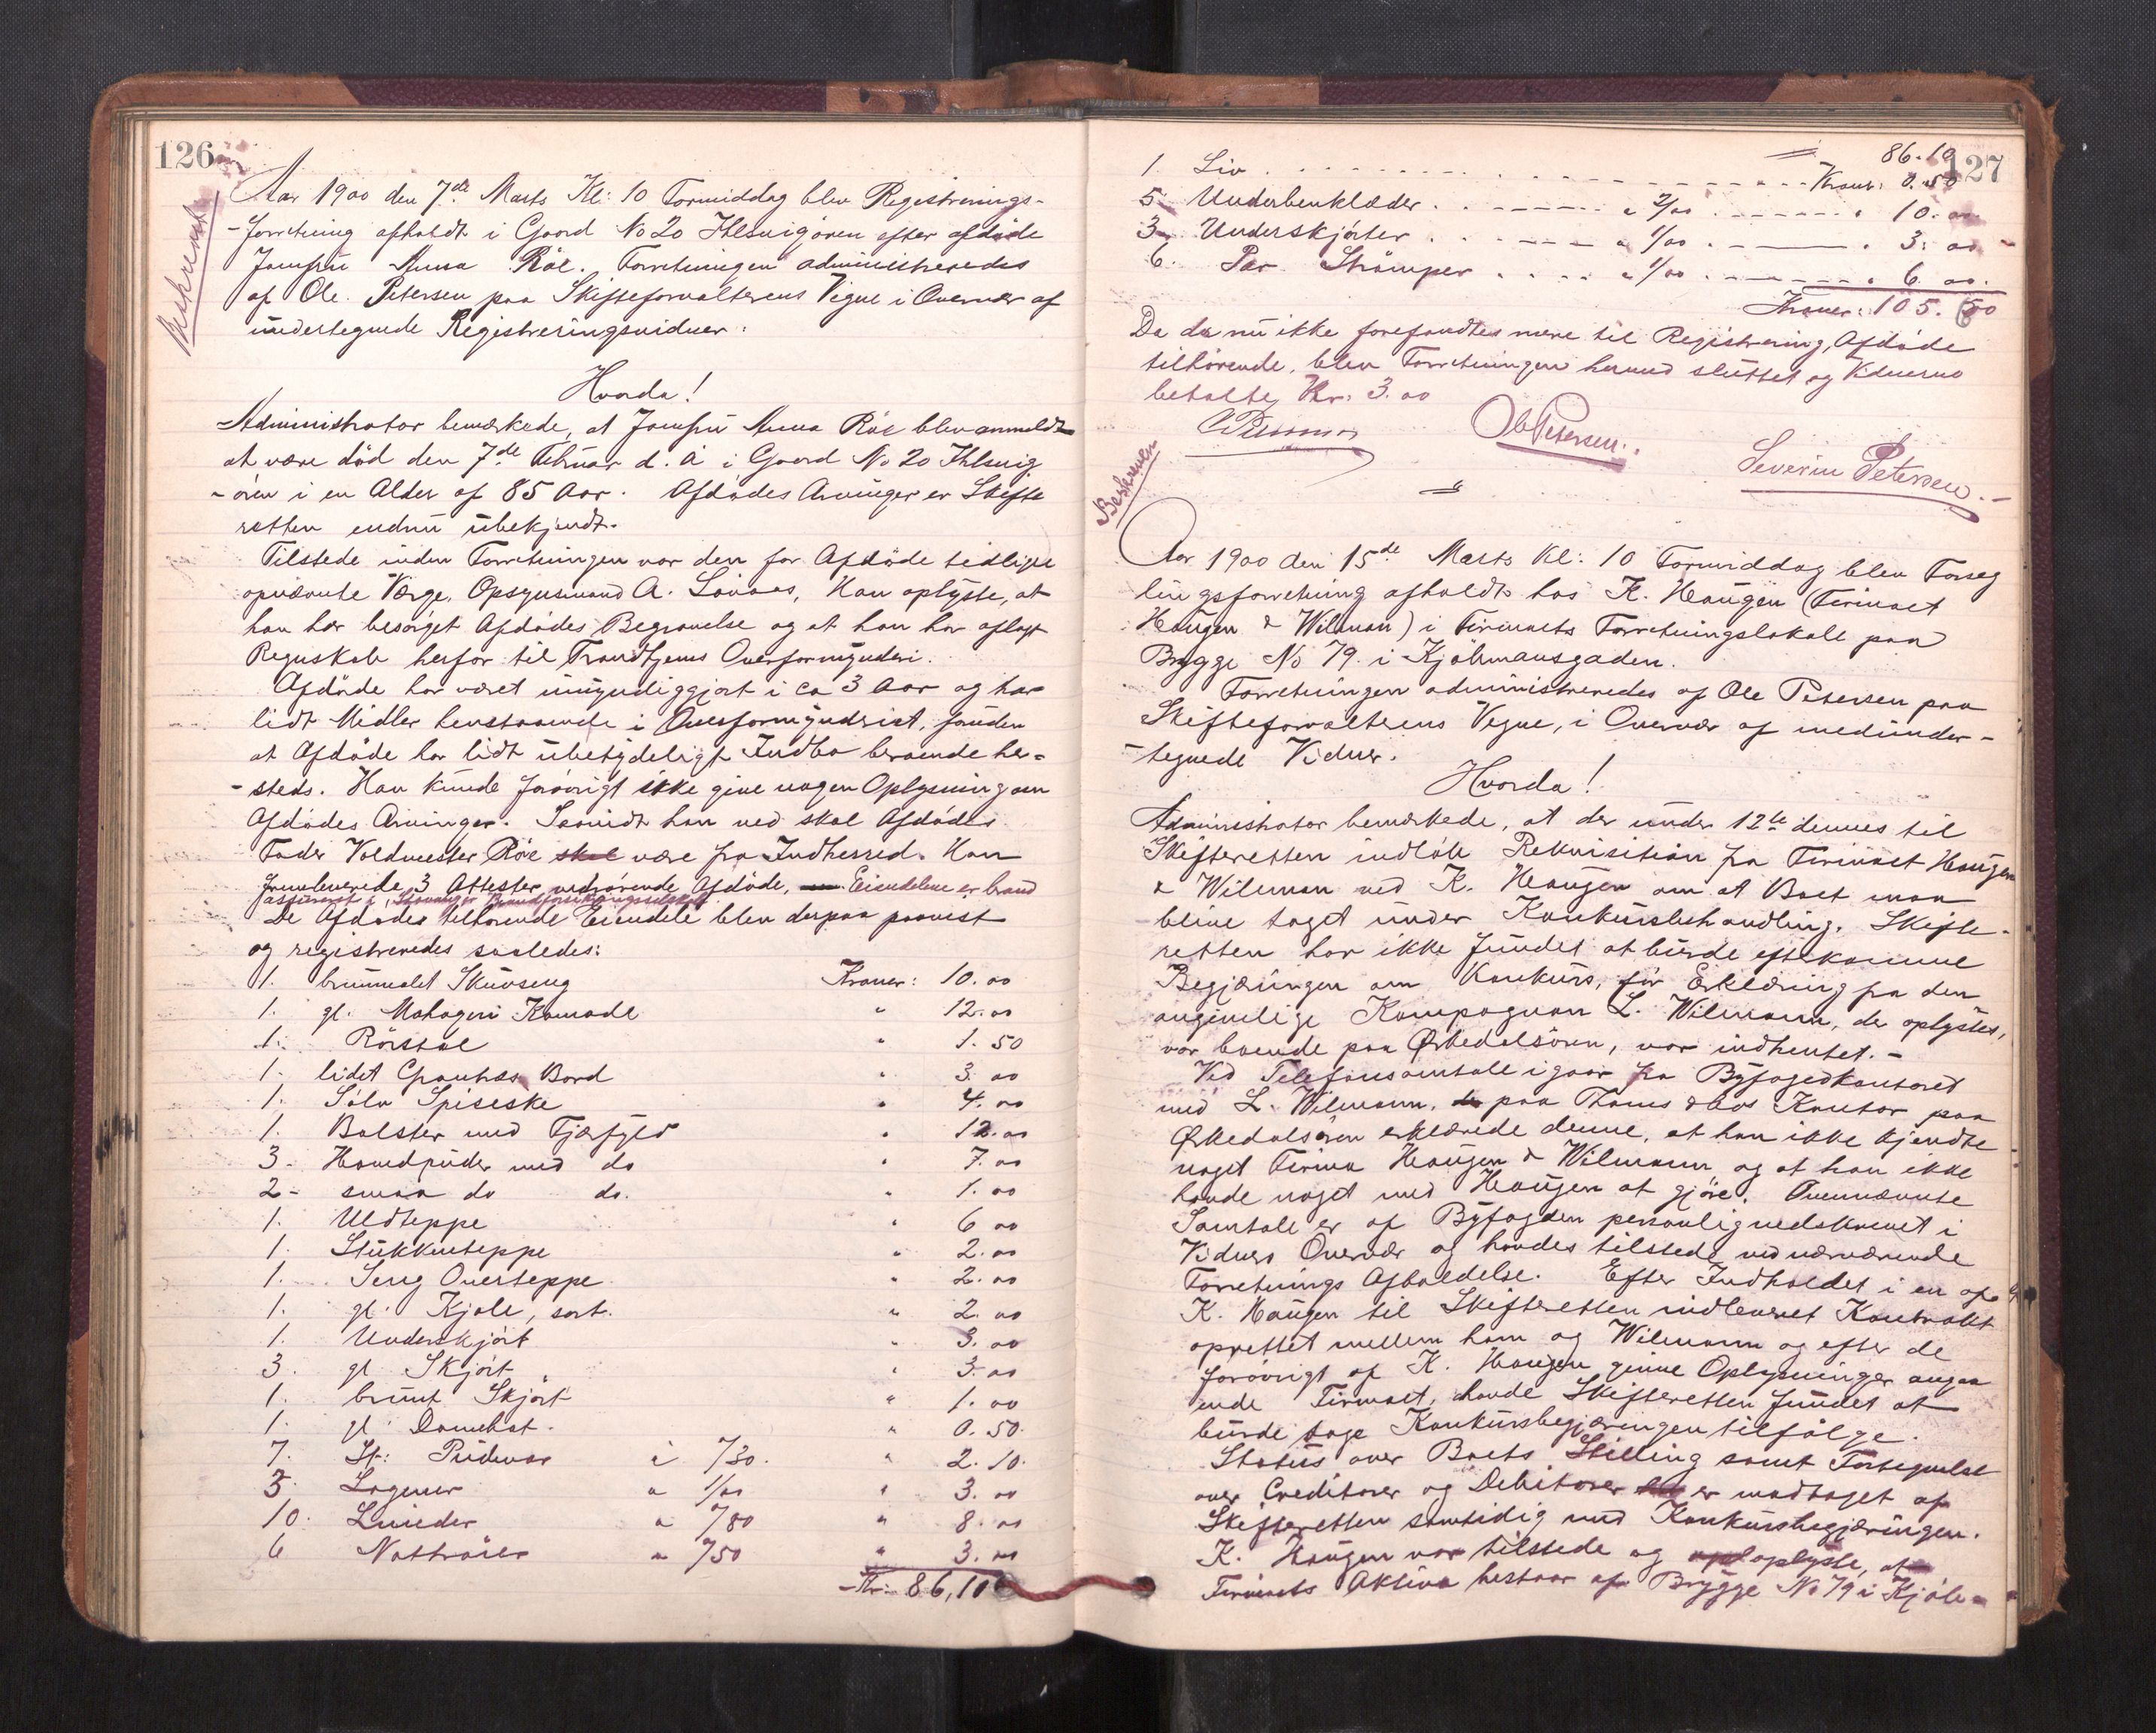 126
Beskrevet
Aar 1900 den 7de Marts Kl: 10 Formiddag blev Registrerings-
-forretning afholdt i Gaard No 20 Ihlsvigören efter afdöde
Jomfru Anna Röe. Forretningen administreredes
af Ole Petersen paa Skifteforvalterens Vegne i Overvær af
undertegnede Registreringsvidner:
Hvorda!
Administrator bemærkede, at Jomfru Anna Röe blev anmeldt
at være död den 7de Februar d. A i Gaard No 20 Ihlsvig
-ören i en Alder af 85 Aar. Afdödes Arvinger er Skifte
retten endnu ubekjendt.
Tilstede inden Forretningen var den for Afdöde tidligere
opnævnte Værge, Opsynsmand A. Lönaas, Han oplyste, at
han har besörget Afdödes Begravelse og at han har aflagt
Regnskab herfor til Trondhjems Overformynderi.
Afdöde har været umyndiggjort i ca 3 Aar og har
lidt Midler henstaaende i Overformynderiet, foruden
at Afdöde har lidt ubetydeligt Indbo beroende her-
-steds. Han kunde forövrigt ikke give nogen Oplysning om
Afdödes Arvinger. Saavidt han ved skal Afdödes
Fader Voldmester Röe skal være fra Indherred. Han
fremleverede 3 Attester vedrörende Afdöde, Eiendelene er brand
assureret i, Stavanger Brandforsikringsselskab.
De Afdödes tilhörende Eiendele blev derpaa paavist
og registreredes saaledes:
1. brunmalet Skuvseng Kroner: 10.00
1. gl. Mahogeni Komode " 12.00
1. Rörstol " 1.50
1. lidet Bord " 3.00
1. Sölv Spiseske " 4.00
1. Bolster med Fjærfyld " 12.00
3- Hovedpuder med do " 7.00
2- smaa do do. " 1.00
1. Uldteppe " 6.00
1. Stukkenteppe " 2.00
1. Seng Overteppe " 2.00
1. gl. Kjole, sort. " 2.00
1. Underskjört " 3.00
3. gl Skjört " 3.00
1. brunt Skjört " 1.00
1. gl. Damehat. " 0.50.
7. St: Pudevar à 7/30. " 2.10.
3 Lagener a 1/00 " 3.00
10. Linieder a 7/80 " 8.00
6 Nattröier a 7/50 " 3.00
Kr: 86,10
127
86.10
1. Liv Kroner: 0.50
5- Underbenklæder a 2/00 " 10.00
3- Underskjörter a 1/00 " 3.00
6. Par Strömper a 1/00 " 6.00.
Kroner: 105.60
Da der nu ikke forefandtes mere til Registrering, Afdöde
tilhörende, blev Forretningen hermed sluttet og Vidnerne
betalte, Kr: 3.00
Ole Petersen. Severin Petersen.
Beskreven
Aar 1900 den 15de Marts Kl: 10 Formiddag blev Forseg
lingsforretning afholdt hos K. Haugen (Firmaet
Haugen & Wilmann) i Firmaets Forretningslokale paa
Brygge No 79 i Kjöbmansgaden.
Forretningen administreredes af Ole Petersen paa
Skifteforvalterens Vegne, i Overvær af medunder-
-tegnede Vidner.
Hvorda!
Administrator bemærkede, at der under 12te dennes til
Skifteretten indlöb Rekvisition fra Firmaet Haugen
& Wilmann ved K. Haugen om at Boet maa
blive taget under Konkursbehandling. Skifte-
retten har ikke fundet at burde efterkomme
Begjæringen om Konkurs, för Erklæring fra den
angivelige Kompagnon L. Wilmann, der oplystes,
var boende paa Ørkedalsören, var indhentet.-
Ved Telefonsamtale igaar fra Byfogedkontoret
med L. Wilmann, paa Thams & Cos Kontor paa
Ørkedalsören erklærede denne, at han ikke kjendte
noget Firma Haugen & Wilmann og at han ikke
havde noget med Haugen at gjöre. Ovennævnte
Samtale er af Byfogden personlig nedskrevet i
Vidners Overvær og havdes tilstede ved nærværende
Forretnings Afholdelse. Efter Indholdet i en af
K. Haugen til Skifteretten indleveret Kontrakt
oprettet mellem ham og Wilmann og efter de
forövrigt af K. Haugen givne Oplysninger angaa
ende Firmaet, havde Skifteretten fundet at
burde tage Konkursbegjæringen tilfölge.
Status over Boets Stilling samt Fortegnelse
over Creditorer og Debitorer er modtaget af
Skifteretten samtidig med Konkursbegjæringen.
K. Haugen var tilstede og oplyste, at
Firmaets Aktiva bestaar af Brygge No 79 i Kjöb-